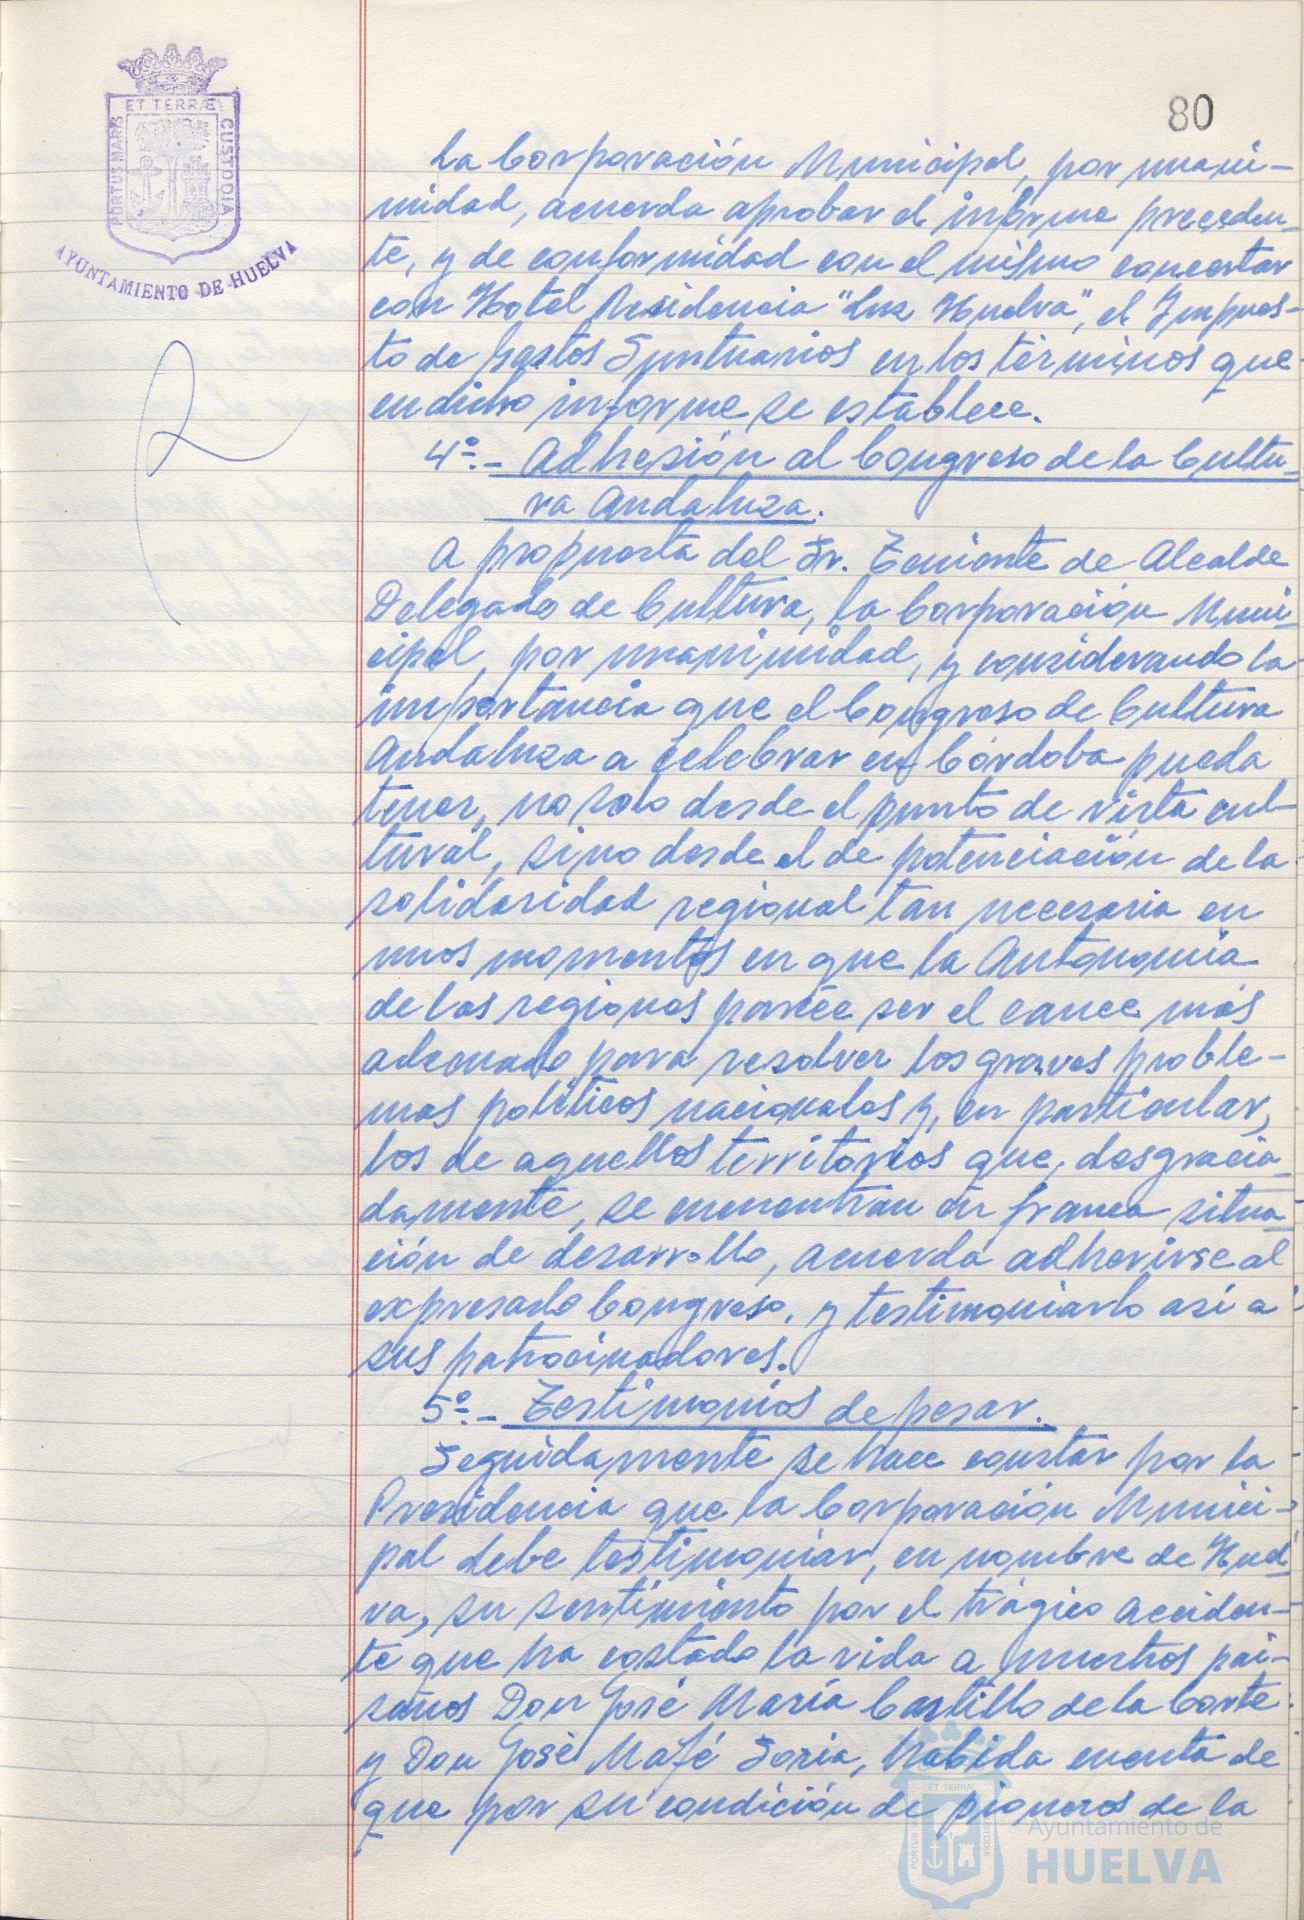 80
ET TERRÆ
PORTUS MARIS
CUSTODIA
AYUNTAMIENTO DE HUELVA
La Corporación Municipal, por unani-
midad, acuerda aprobar el informe preceden-
te, y de conformidad con el mismo concertar
con Hotel Residencia "Luz Huelva", el Impues-
to de Gastos Suntuarios en los términos que
en dicho informe se establece.
4º.- Adhesión al Congreso de la Cultu-
ra Andaluza.
A propuesta del Sr. Teniente de Alcalde
Delegado de Cultura, la Corporación Muni-
cipal, por unanimidad, y considerando la
importancia que el Congreso de Cultura
Andaluza a celebrar en Córdoba pueda
tener, no solo desde el punto de vista cul-
tural, sino desde el de potenciación de la
solidaridad regional tan necesaria en
unos momentos en que la Autonomía
de las regiones parece ser el cauce más
adecuado para resolver los graves proble-
mas políticos nacionales y, en particular,
los de aquellos territorios que, desgracia-
damente, se encuentran en franca situa-
ción de desarrollo, acuerda adherirse al
expresado Congreso, y testimoniarlo así a
sus patrocinadores.
5º.- Testimonios de pesar.
Seguidamente se hace constar por la
Presidencia que la Corporación Munici-
pal debe testimoniar, en nombre de Huel-
va, su sentimiento por el trágico acciden-
te que ha costado la vida a nuestros pai-
sanos Don José María Castillo de la Corte
y Don José Mafé Soria, habida cuenta de
que por su condición de pioneros de la
ET TERRÆ
Ayuntamiento de
HUELVA